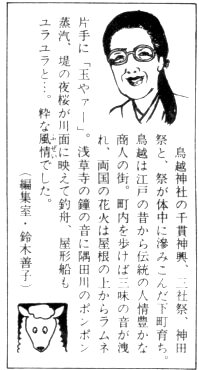 鳥越神社の千貫神興、三社祭、神田
祭と、祭が体中に滲みこんだ下町育ち。
鳥越は江戸の昔から伝統の人情豊かな
商人の街。町内を歩けば三味の音が洩
れ、両国の花火は屋根の上からラムネ
片手に「玉やァー」。浅草寺の鐘の音に隅田川のポンポン
蒸汽、堤の夜桜が川面に映えて釣舟、屋形船も
ユラユラと…。粋な風情でした。
ふぜい
（編集室・鈴木善子）